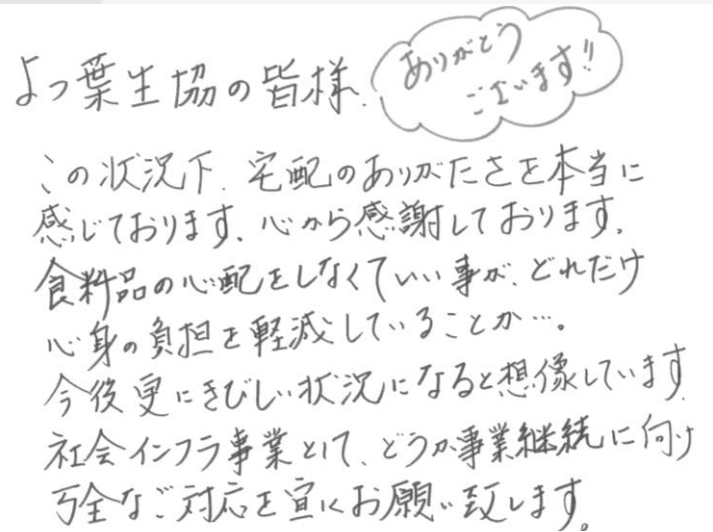 よつ葉生協の皆様、
ありがとう
ございます!!
この状況下、宅配のありがたさを本当に
感じております。心から感謝しております。
食料品の心配をしなくていい事が、どれだけ
心身の負担を軽減していることか…。
今後更にきびしい状況になると想像しています。
社会インフラ事業として、どうか事業継続に向け
万全なご対応を宜しくお願い致します。